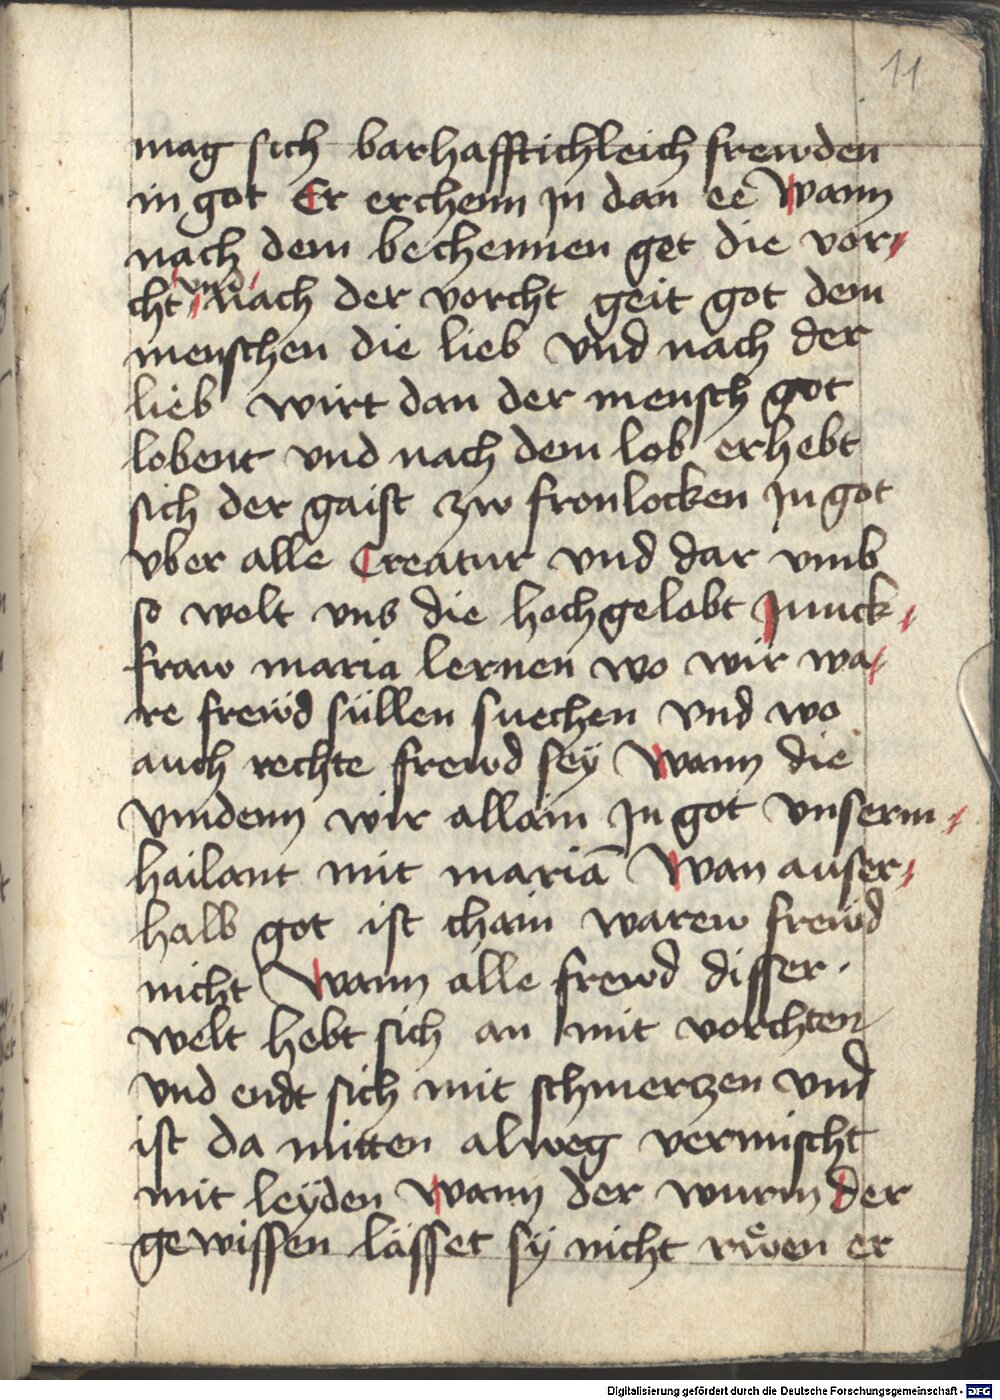 11
mag sich barhafftichleich frewden
in got Er erchenn in dan ee Wann
nach dem bechennen get die vor-
cht und nach der vorcht geit got dem
menschen die lieb vnd nach der
lieb wirt dan der mensch got
lobent vnd nach dem lob erhebt
sich der gaist zw fronlocken In got
vber alle Creatur vnd dar vmb
so welt vns die hochgelobt Junck-
fraw maria lernen wo wir wa-
re frewd süllen suechen vnd wo
auch rechte frewd sey Wann die
vindenn wir allain In got vnserm
hailant mit mariā Wan auser-
halb got ist chain warew frewd
nicht Wann alle frewd disser
welt hebt sich an mit vorchten
vnd endt sich mit schmerczen vnd
ist da mitten alweg vermischt
mit leyden Wann der wurm der
gewissen lässet sy nicht rwͤen er
Digitalisierung gefördert durch die Deutsche Forschungsgemeinschaft - DFG